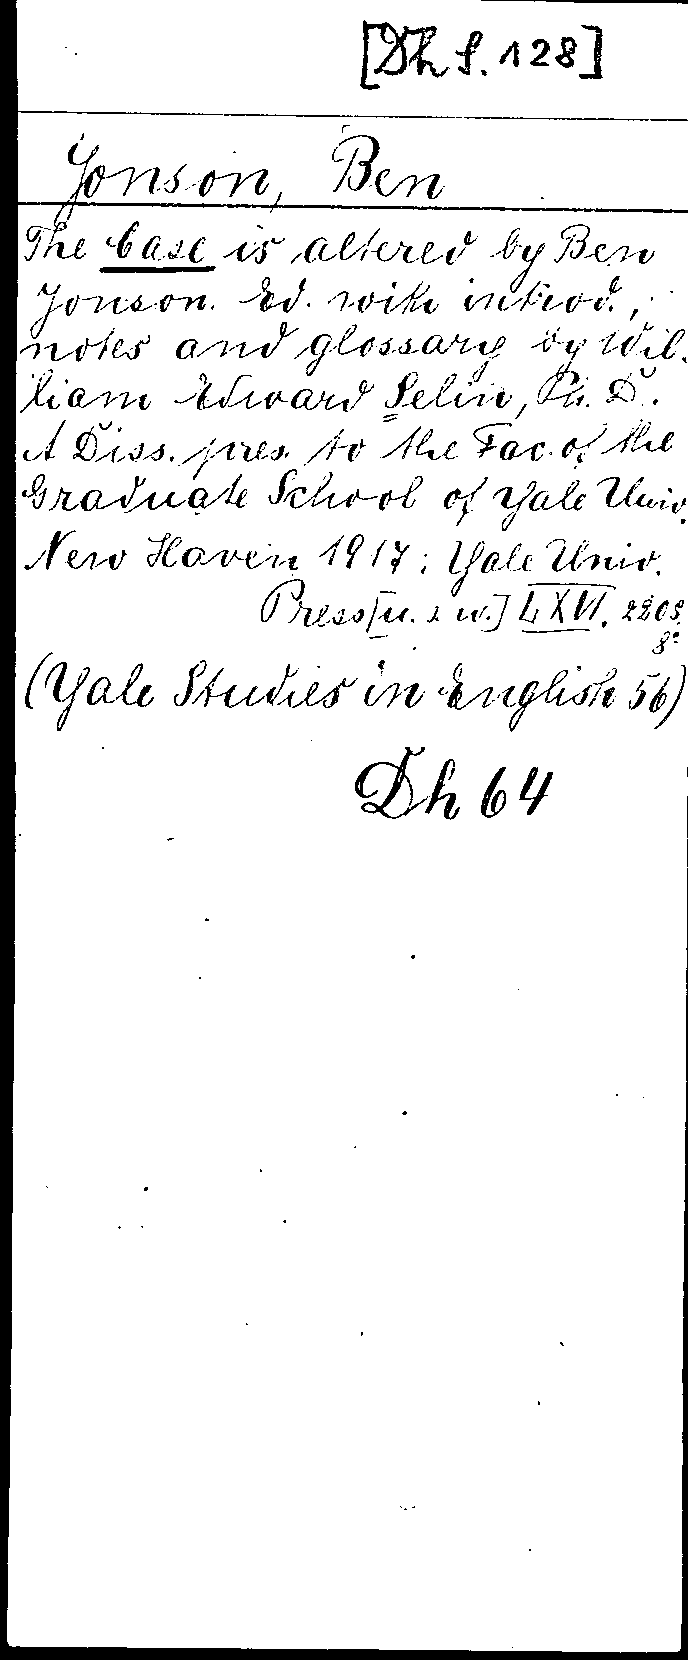 [Dh S. 128]
Jonson, Ben
The Case is altered by Ben
Jonson. Ed. with introd.,
notes and glossary by Wil-
liam Edward Selin, Ph. D.
A Diss. pres. to the Fac. of the
Graduate School of Yale Univ.
New Haven 1917: Yale Univ.
Press [u. s. w.] LXVI, 220 S.
8°
(Yale Studies in English 56)
Dh 64